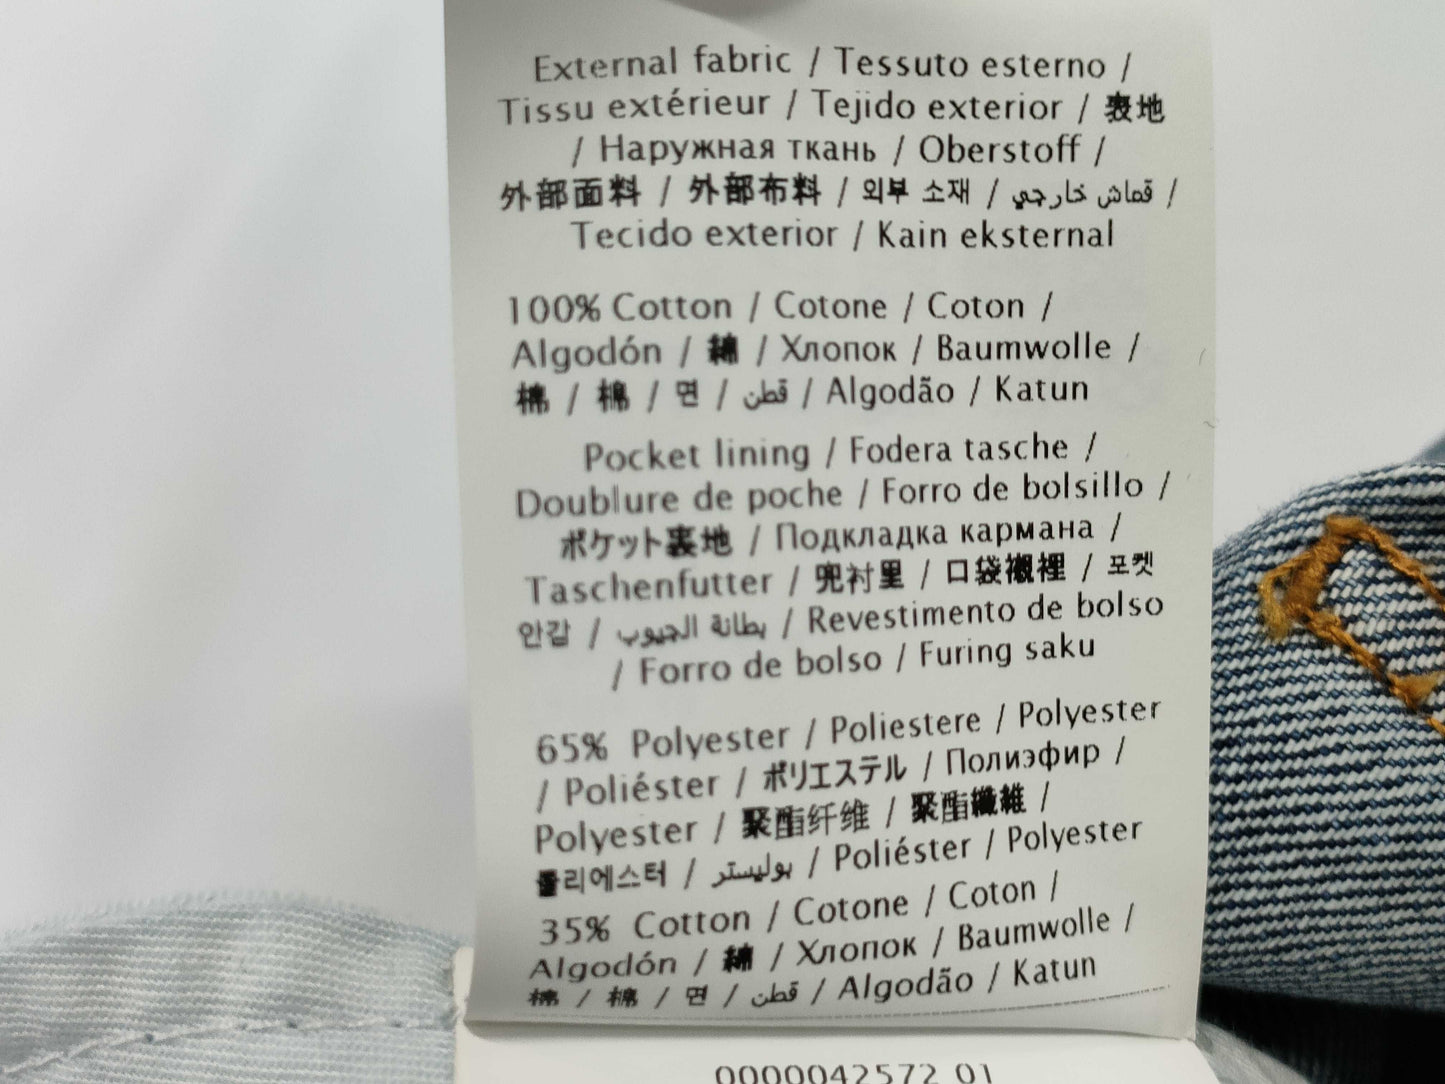 External fabric / Tessuto esterno /
Tissu extérieur / Tejido exterior / 表地
/ Наружная ткань / Oberstoff /
外部面料 / 外部布料 / 외부 소재 / قماش خارجي /
Tecido exterior / Kain eksternal
100% Cotton / Cotone / Coton /
Algodón / 綿 / Хлопок / Baumwolle /
棉 / 棉 / 면 / قطن / Algodão / Katun
Pocket lining / Fodera tasche /
Doublure de poche / Forro de bolsillo /
ポケット裏地 / Подкладка кармана /
Taschenfutter / 兜衬里 / 口袋襯裡 / 포켓
안감 / بطانة الجيوب / Revestimento de bolso
/ Forro de bolso / Furing saku
65% Polyester / Poliestere / Polyester
/ Poliéster / ポリエステル / Полиэфир /
Polyester / 聚酯纤维 / 聚酯纖維 /
폴리에스터 / بوليستر / Poliéster / Polyester
35% Cotton / Cotone / Coton /
Algodón / 綿 / Хлопок / Baumwolle /
棉 / 棉 / 면 / قطن / Algodão / Katun
0000042572 01